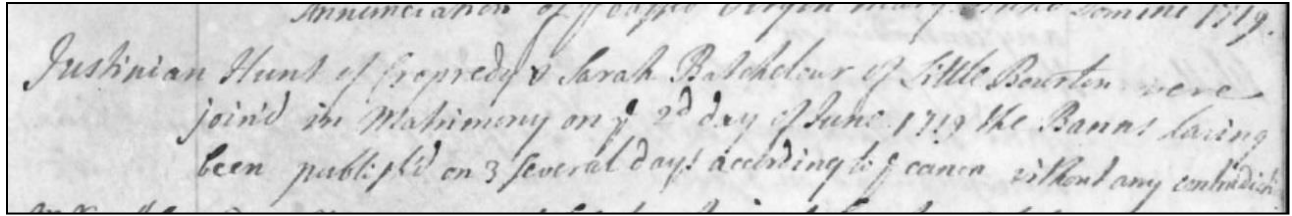 Annunciation of ye blessed Virgin Mary Anno Domini 1719.
Justinian Hunt of Cropredy & Sarah Batchelour of Little Bourton were
join'd in Matrimony on ye 2d day of June 1719 the Banns having
been publish'd on 3 several days according to ye canon without any contradicti